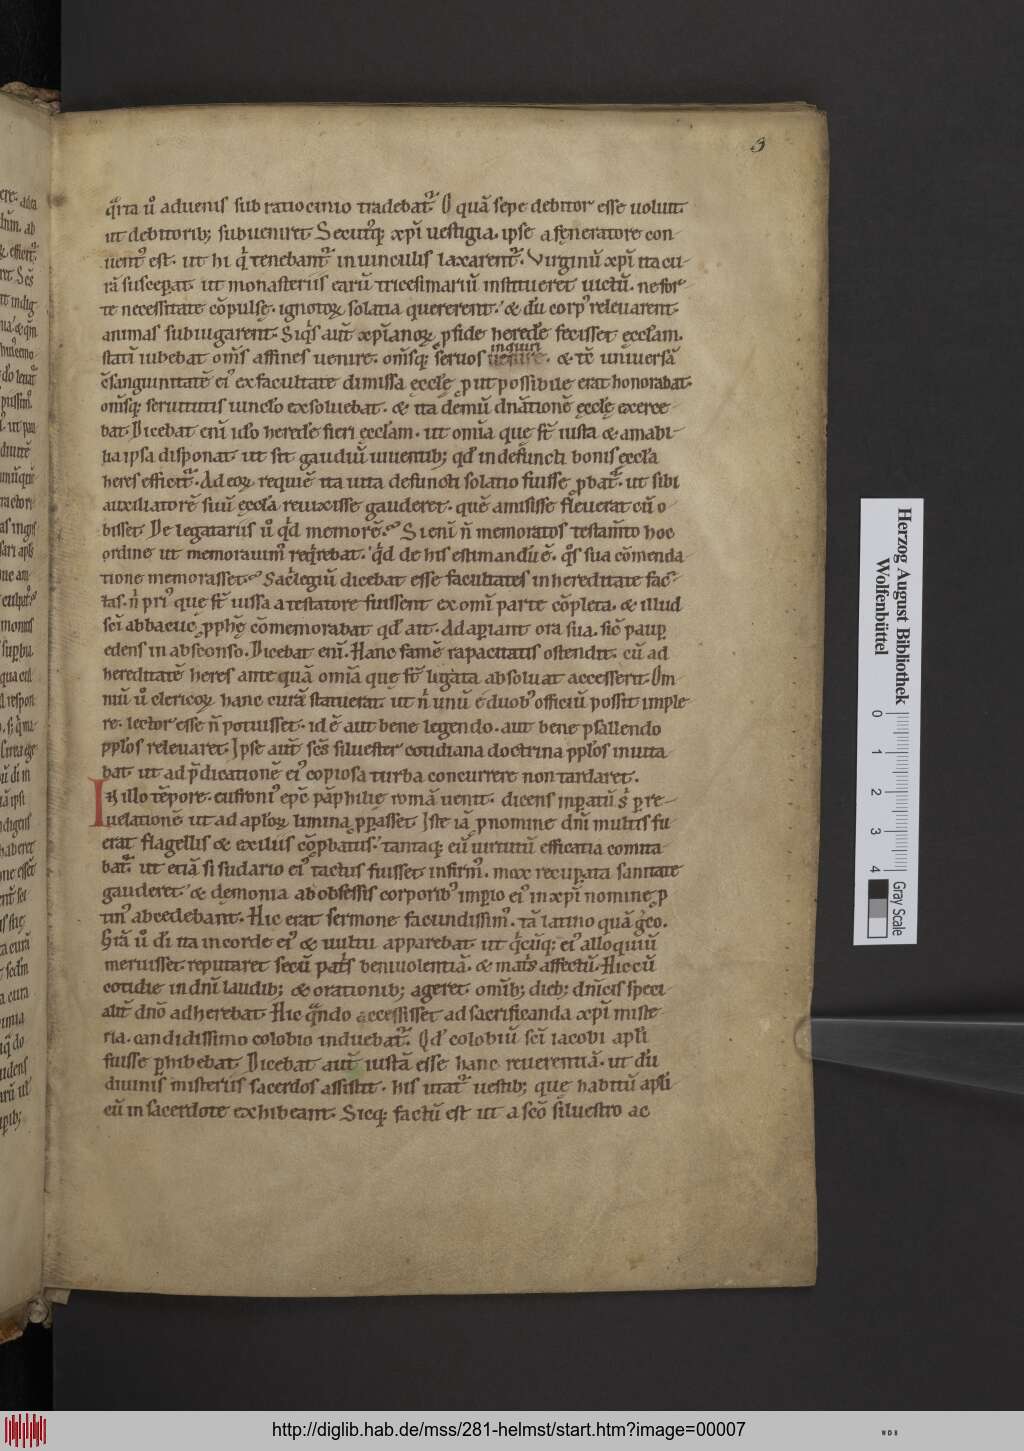 3
q̃rta ů aduenis sub ratiocinio tradebat᷑. O quā sepe debitor esse uoluit.
ut debitorib; subueniret. Secut᷒q; xpī uestigia. ipse a fęneratore con-
uent᷒ est. ut hi q̇ tenebant᷑ in uinculis laxarent᷑. Virginū xpī ita cu-
rā suscepat. ut monasteriis earū tricesimariū institueret uictū. ne for-
te necessitate cōpulsę. ignotoꝝ solatia quererent. & dū corp᷒ releuarent.
animas subiugarent. Siq̇s aut̄ xp̄ianoꝝ p fide heredē fecisset ęcctam.
statī iubebat om̄s affines uenire. om̄sq; seruos inquiri. & tē uniuersā
c̄sanguinitatē ei᷒ ex facultate dimissa ęcclę put possibile erat honorabat.
om̄sq; seruitutis uinclo exsoluebat. & ita demū dnātionē ęcclę exerce-
bat. Dicebat enī idō heredē fieri ęcclam. ut omīa quę st̄ iusta & amabi-
lia ipsa disponat. ut sit gaudiū uiuentib; qd̄ in defuncti bonis ęccła
heres efficit᷑. Ad eoꝝ requiē ita uita defuncti solatio fuisse pbat᷑. ut sibi
auxiliatorē suū ęccła reuixisse gauderet. quē amisisse fleuerat cū o-
bisset. De legatariis ů q̇d memorē. Si enī n̄ memoratos testam̄to hoc
ordine ut memorauim᷒ req̇rebat. q̇d de his estimandū ē. q̇s sua cōmenda-
tione memorasset. Sac̓legiū dicebat esse facultates in hereditate fac-
tas. n̓ pri᷒ quę st̄ iussa a testatore fuissent ex omī parte cōpleta. & illud
sc̄i abbacuc pphę cōmemorabat qd̄ ait. Adapiant ora sua. sic̄ paup
edens in absconso. Dicebat enī. Hanc famē rapacitatis ostendit. cū ad
hereditatē heres ante quā omīa que st̄ ligata absoluat accesserit. Om-
niū ů clericoꝝ hanc curā statuerat. ut n̓ unū e duob᷒ officiū possit imple-
re. lector esse n̄ potuisset. id ē aut bene legendo. aut bene psallendo
ppłos releuaret. Ipse aut̄ sc̄s siluester cotidiana doctrina ppłos inuita-
bat. ut ad p̄dicationē ei᷒ copiosa turba concurrere non tardaret.
In illo tēpore. eufroni᷒ epc̄ pāphilię romā uenit. dicens inpatū s̓ p re-
uelationē ut ad aploꝝ limina ppasset. Iste iā p nomine dnī multis fu-
erat flagellis & exiliis cōpbatus. tantaq; eū uirtutū efficatia comita-
bat᷑. ut etiā si sudario ei᷒ tactus fuisset infirm᷒. mox recupata sanitate
gauderet. & demonia ab obsessis corporib᷒ impio ei᷒ in xpī nomine p-
tin᷒ abcedebant. Hic erat sermone facundissim᷒. tā latino quā g̓co.
Gr̄a ů dī ita in corde ei᷒ & uultu apparebat. ut q̇cūq; ei᷒ alloquiū
meruisset reputaret secū pat̓s beniuolentiā. & mat̓s affectū. Hic cū
cotidie in dnī laudib; & orationib; ageret. omīb; dieb; dnīcis speci-
alit̄ dnō adherebat. Hic q̃ndo accessisset ad sacrificanda xpī miste-
ria. candidissimo colobio induebat᷑. Qd̄ colobiū sc̄i iacobi aplī
fuisse phibebat. Dicebat aut̄ iustā esse hanc reuerentiā. ut dū
diuinis misteriis sacerdos assistit. his utat᷑ uestib; quę habitū aplī
cū in sacerdote exhibeant. Sicq; factū est ut a sc̄o siluestro ac
Herzog August Bibliothek
Wolfenbüttel
0 1 2 3 4
Gray Scale
http://diglib.hab.de/mss/281-helmst/start.htm?image=00007